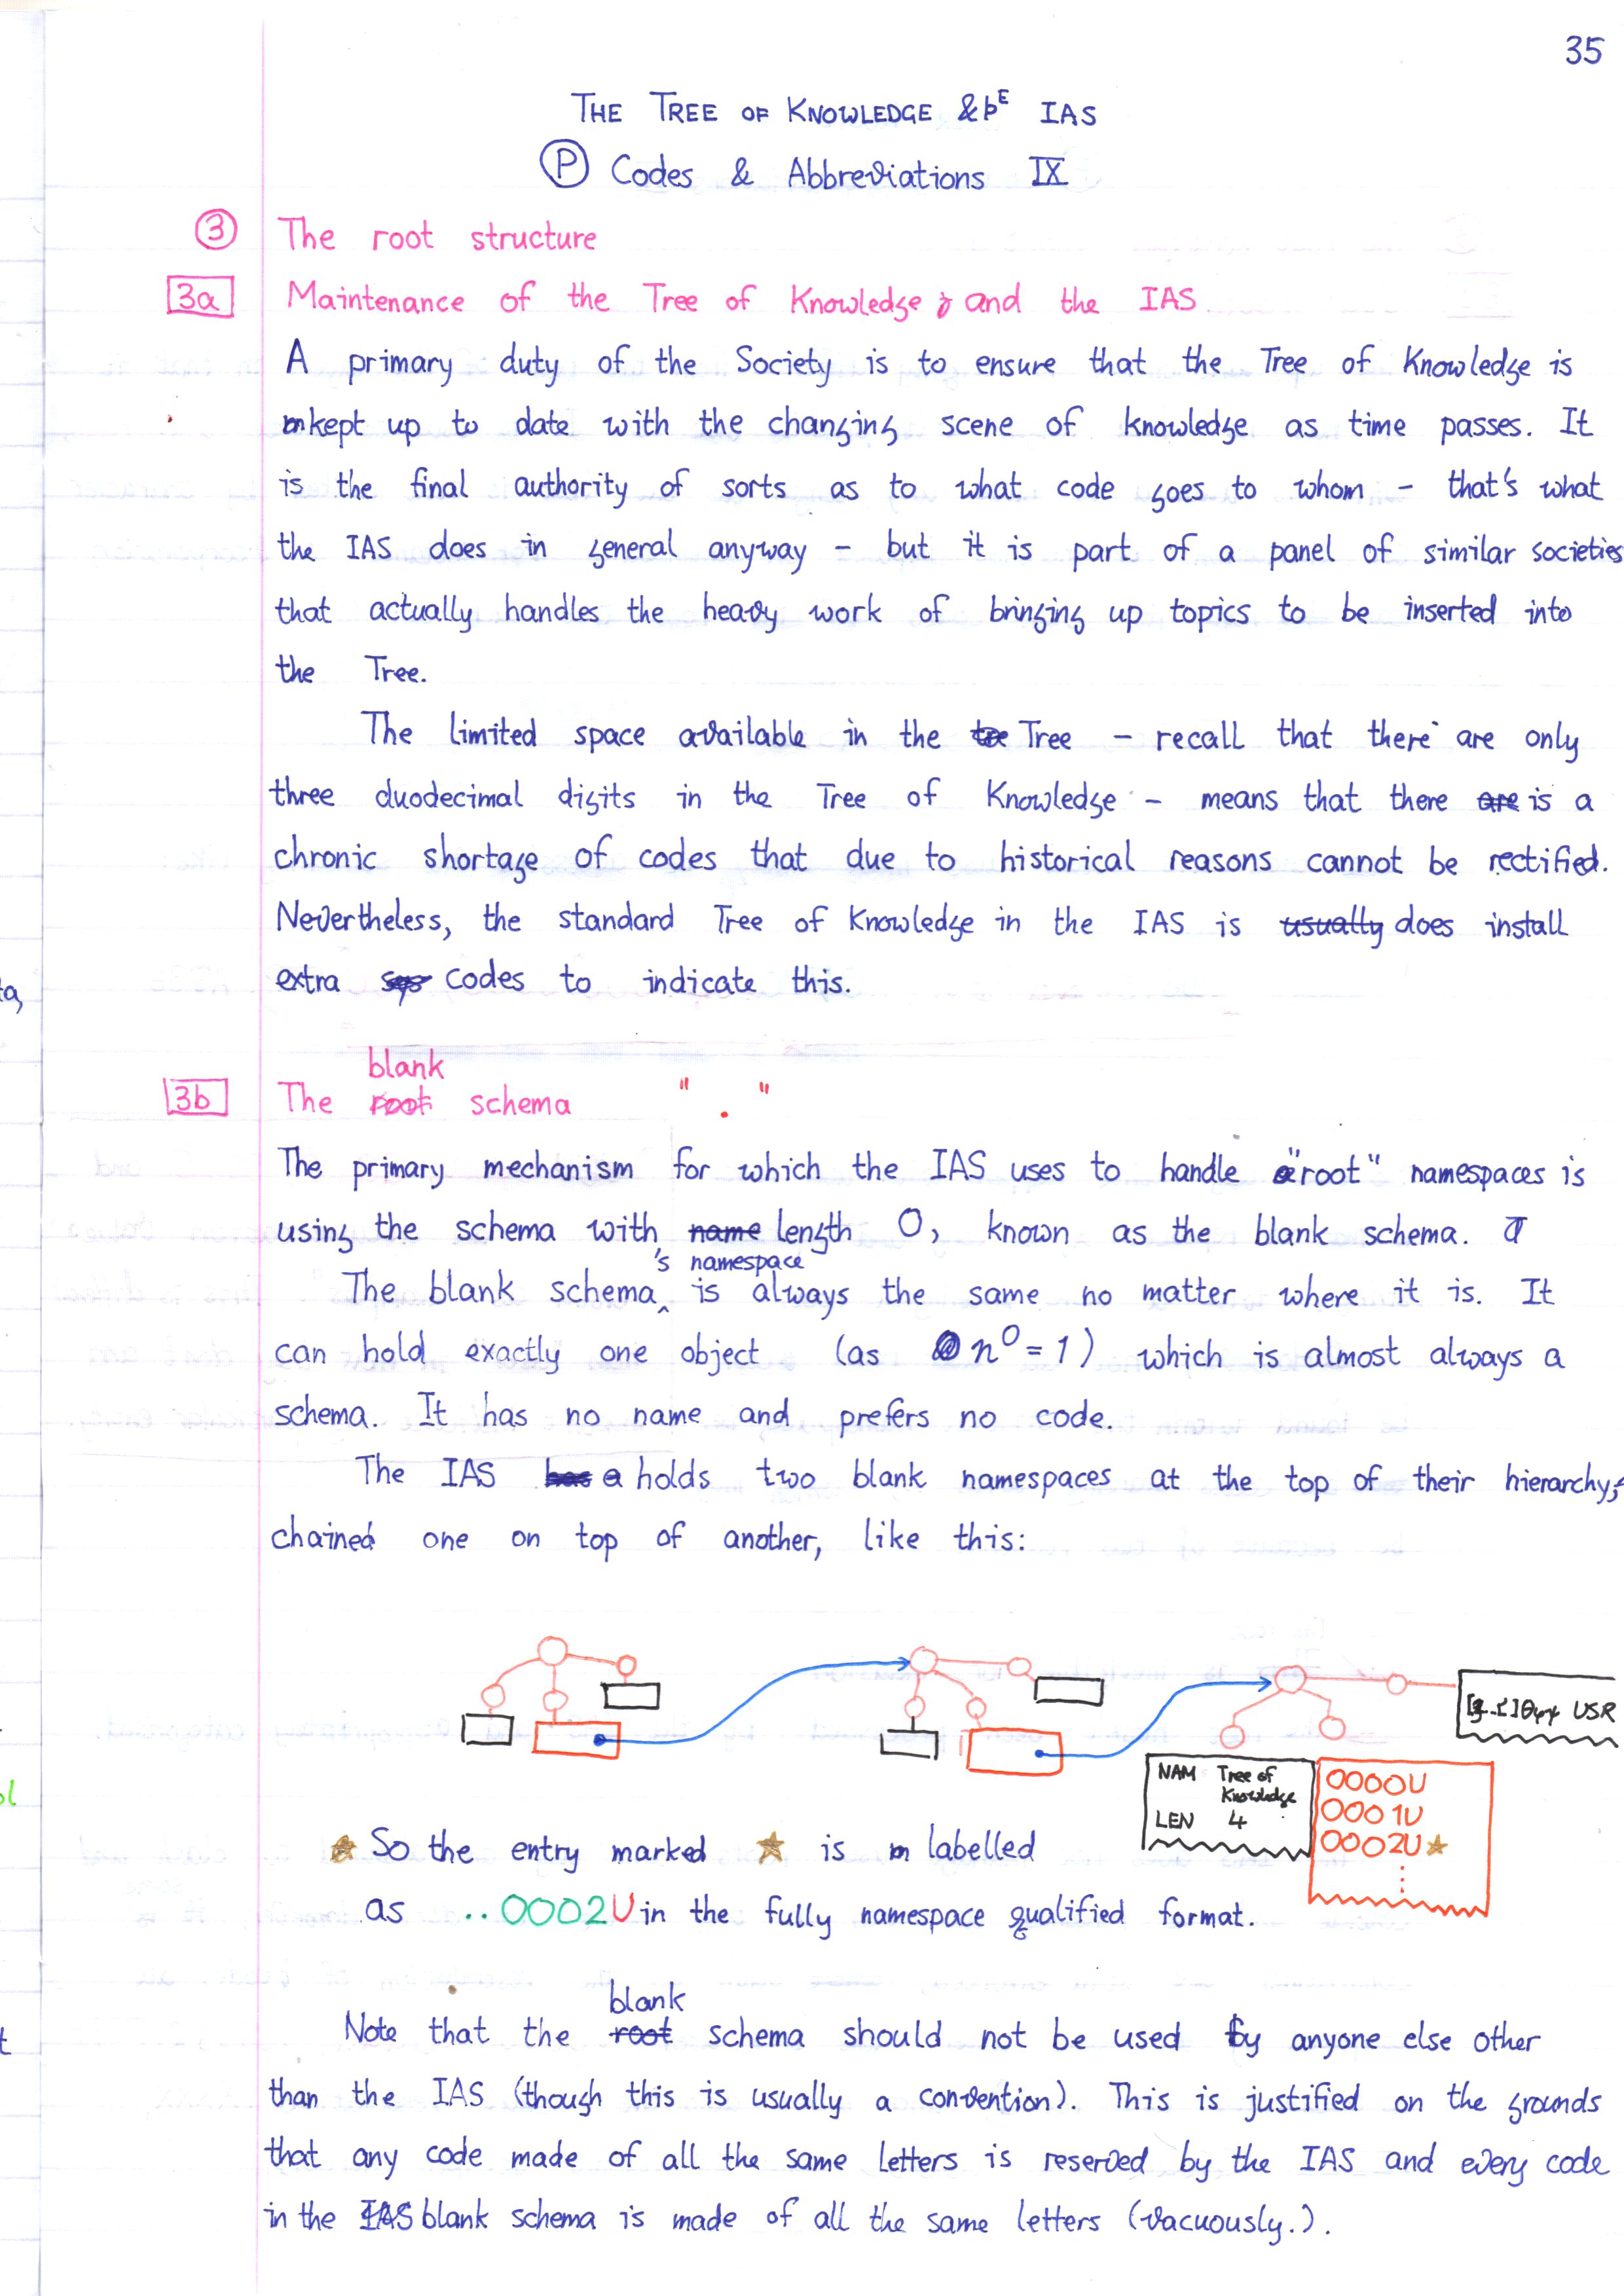 35
THE TREE OF KNOWLEDGE & þᴱ IAS
Ⓟ Codes & Abbreviations IX
③ The root structure
3a Maintenance of the Tree of Knowledge and the IAS
A primary duty of the Society is to ensure that the Tree of Knowledge is
kept up to date with the changing scene of knowledge as time passes. It
is the final authority of sorts as to what code goes to whom – that's what
the IAS does in general anyway – but it is part of a panel of similar societies
that actually handles the heavy work of bringing up topics to be inserted into
the Tree.
The limited space available in the Tree – recall that there are only
three duodecimal digits in the Tree of Knowledge – means that there are is a
chronic shortage of codes that due to historical reasons cannot be rectified.
Nevertheless, the standard Tree of Knowledge in the IAS is usually does install
extra codes to indicate this.
blank
3b The root schema " . "
The primary mechanism for which the IAS uses to handle "root" namespaces is
using the schema with name length 0, known as the blank schema.
's namespace
The blank schema‸ is always the same no matter where it is. It
can hold exactly one object (as n⁰ = 1) which is almost always a
schema. It has no name and prefers no code.
The IAS has a holds two blank namespaces at the top of their hierarchy,
chained one on top of another, like this:
USR
NAM Tree of
Knowledge
LEN 4
0000U
0001U
0002U ★
⋮
★ So the entry marked ★ is labelled
as ..0002U in the fully namespace qualified format.
blank
Note that the root schema should not be used by anyone else other
than the IAS (though this is usually a convention). This is justified on the grounds
that any code made of all the same letters is reserved by the IAS and every code
in the IAS blank schema is made of all the same letters (vacuously.).